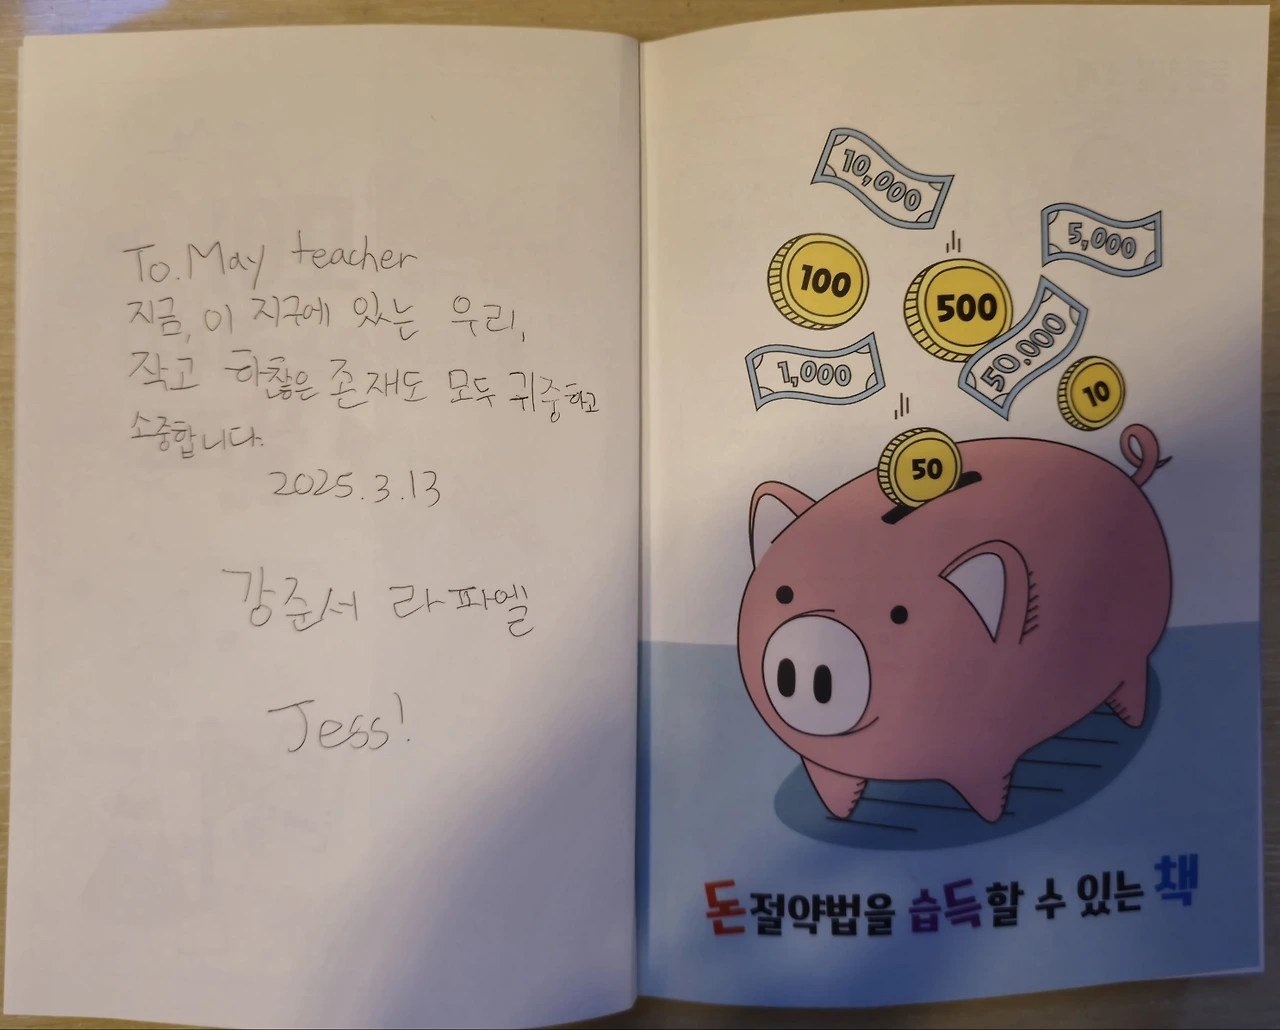 To. May teacher
지금, 이 지구에 있는 우리,
작고 하찮은 존재도 모두 귀중하고
소중합니다.
2025.3.13
강준서 라파엘
Jess!
10,000
5,000
100
500
50,000
1,000
10
50
돈절약법을 습득할 수 있는 책